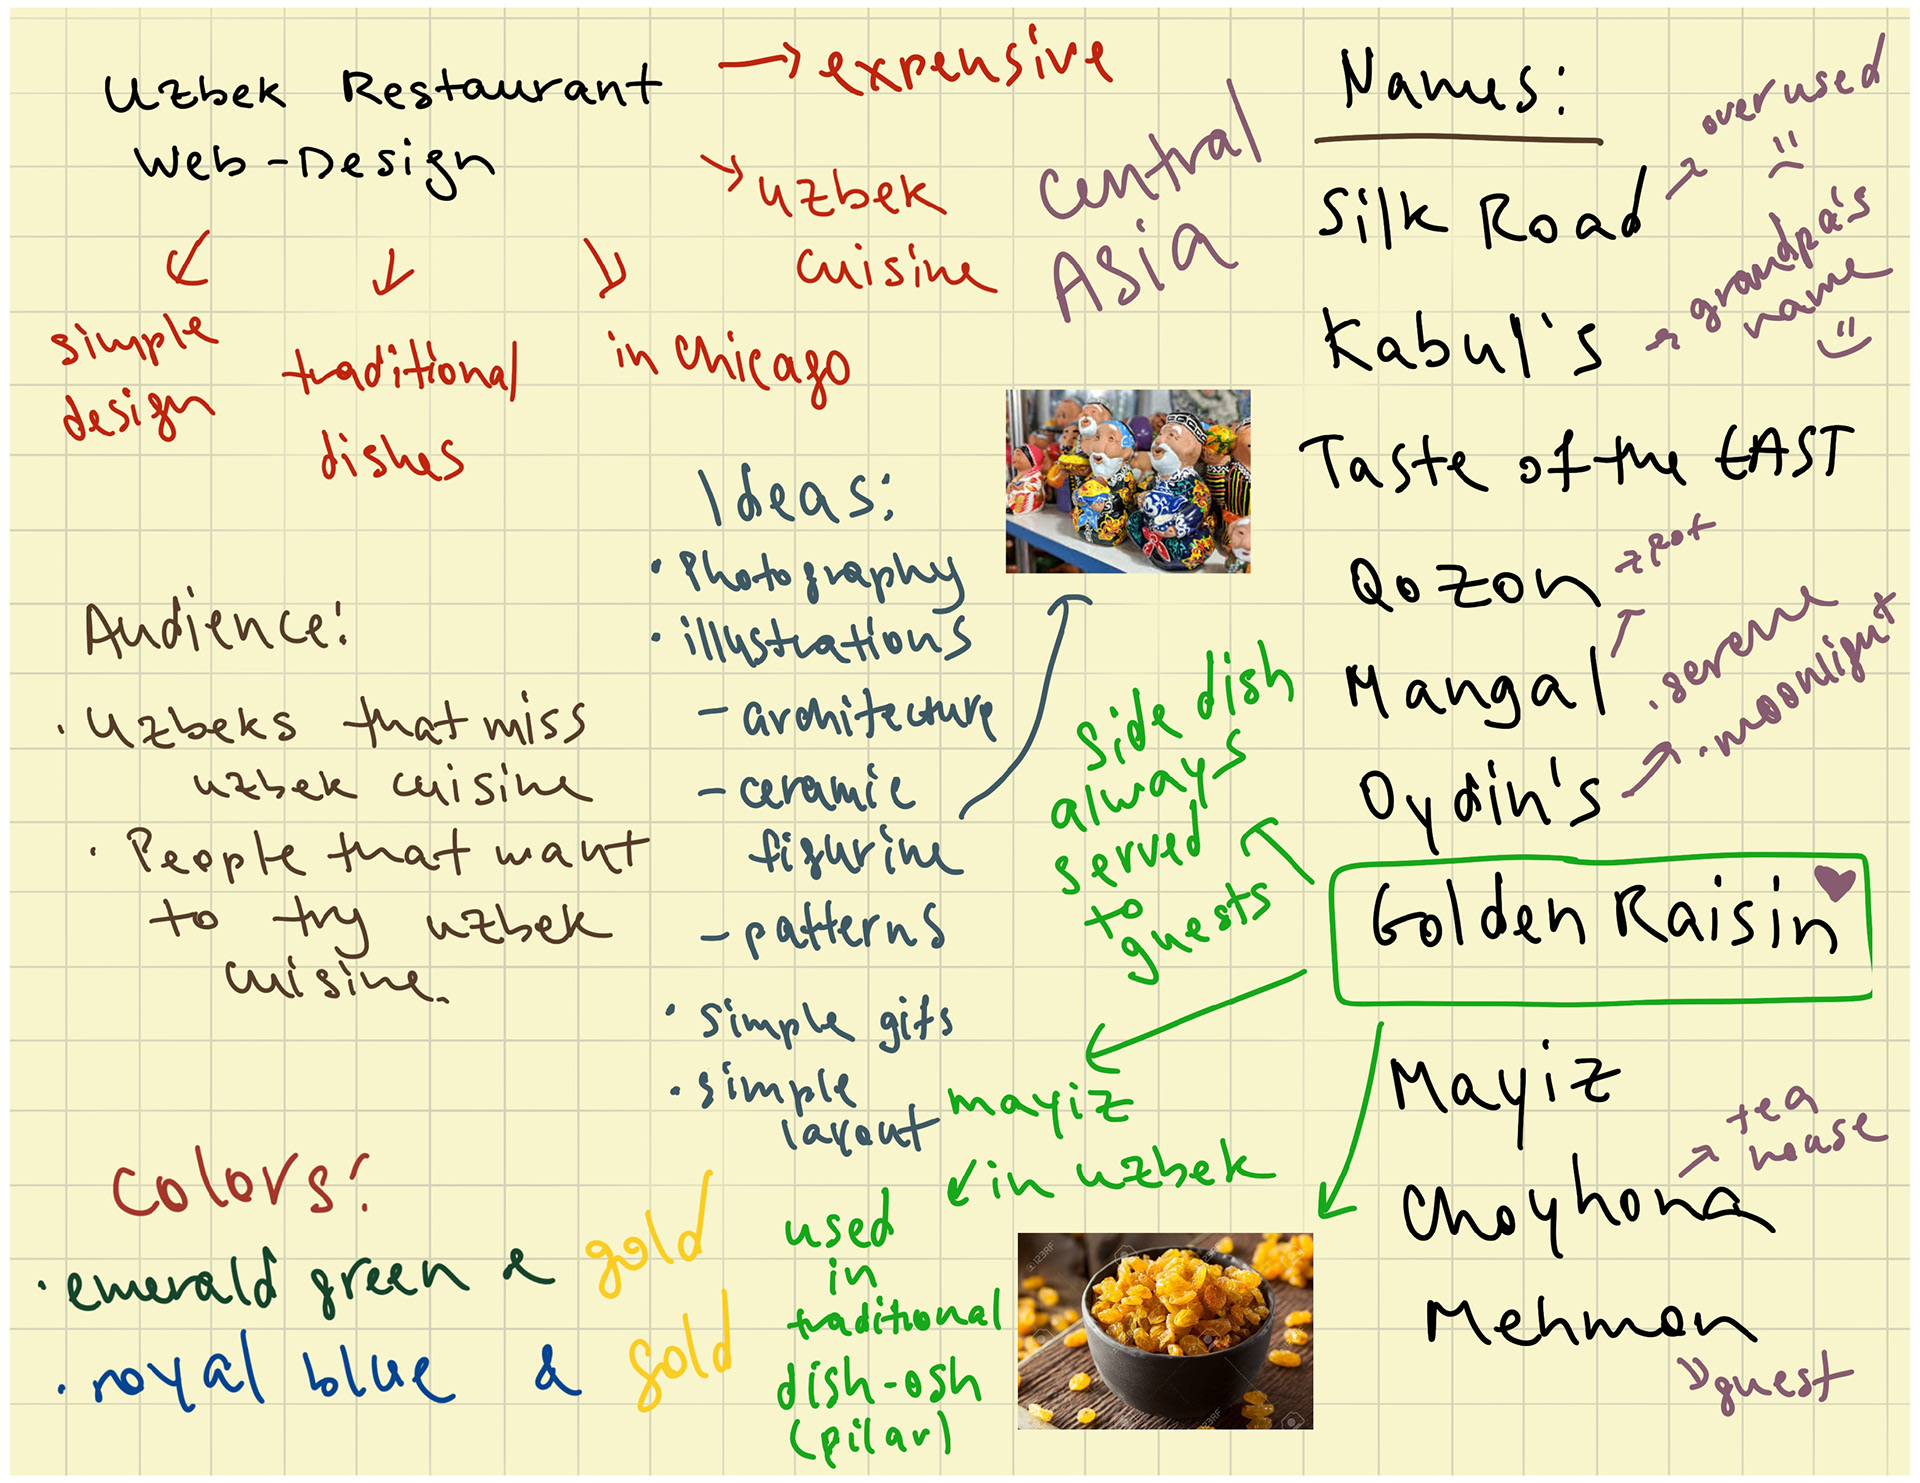 Uzbek Restaurant
Web-Design
→ expensive
→ uzbek
cuisine
simple
design
traditional
dishes
in Chicago
Central
ASIA
Audience:
· Uzbeks that miss
uzbek cuisine
· People that want
to try uzbek
cuisine.
Ideas:
· Photography
· illustrations
- architecture
- ceramic
figurine
- patterns
· simple gifs
· simple
layout
Colors:
· emerald green & gold
· royal blue & gold
Names:
Silk Road
overused
Kabul's
grandpa's
name
Taste of the EAST
Qozon
pot
Mangal
Oydin's
· serene
· moonlight
Golden Raisin
side dish
always
served
to
guests
mayiz
in uzbek
used
in
traditional
dish-osh
(pilav)
Mayiz
Choyhona
tea
house
Mehmon
guest
123RF
123RF